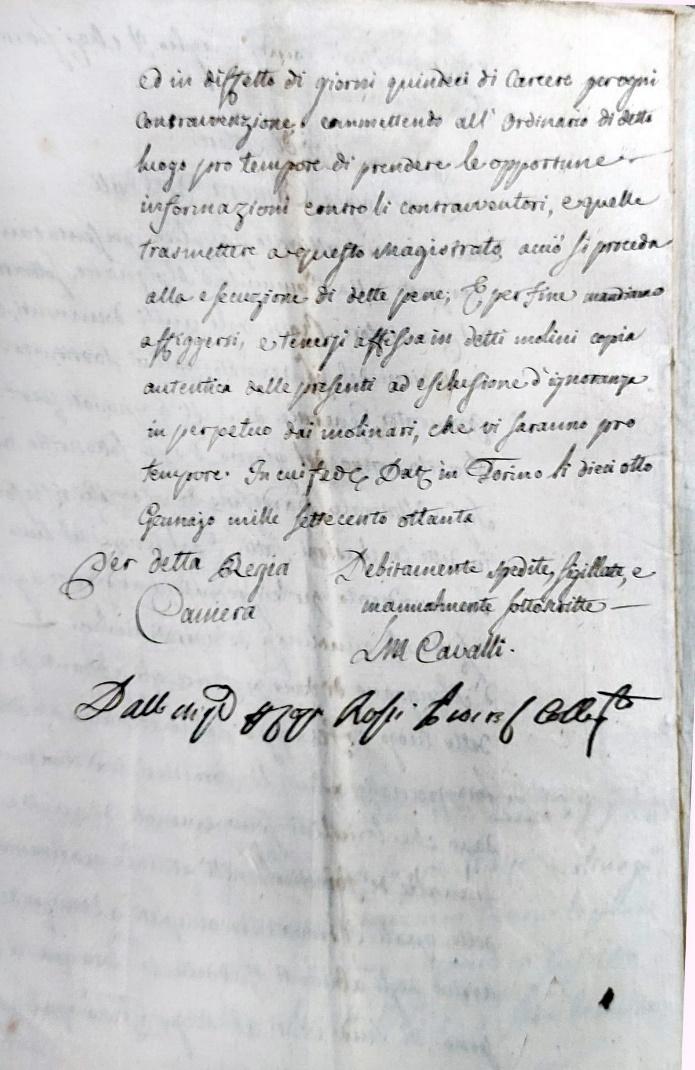 ed in diffetto di giorni quindeci di Carcere per ogni
Contravvenzione, commettendo all' Ordinario di detto
luogo pro tempore di prendere le opportune
informazioni contro li contravventori, e quelle
trasmettere a questo Magistrato, acciò si proceda
alla esecuzione di dette pene; E per fine mandiamo
affiggersi, e tenersi affissa in detti molini copia
autentica delle presenti ad esclusione d'ignoranza
in perpetuo dai molinari, che vi saranno pro
tempore. In cui fede Dat. in Torino li dieci otto
Gennajo mille settecento ottanta
Per detta Regia
Camera
Debitamente spedite, sigillate, e
manualmente sottoscritte —
LM Cavalli.
Rossi